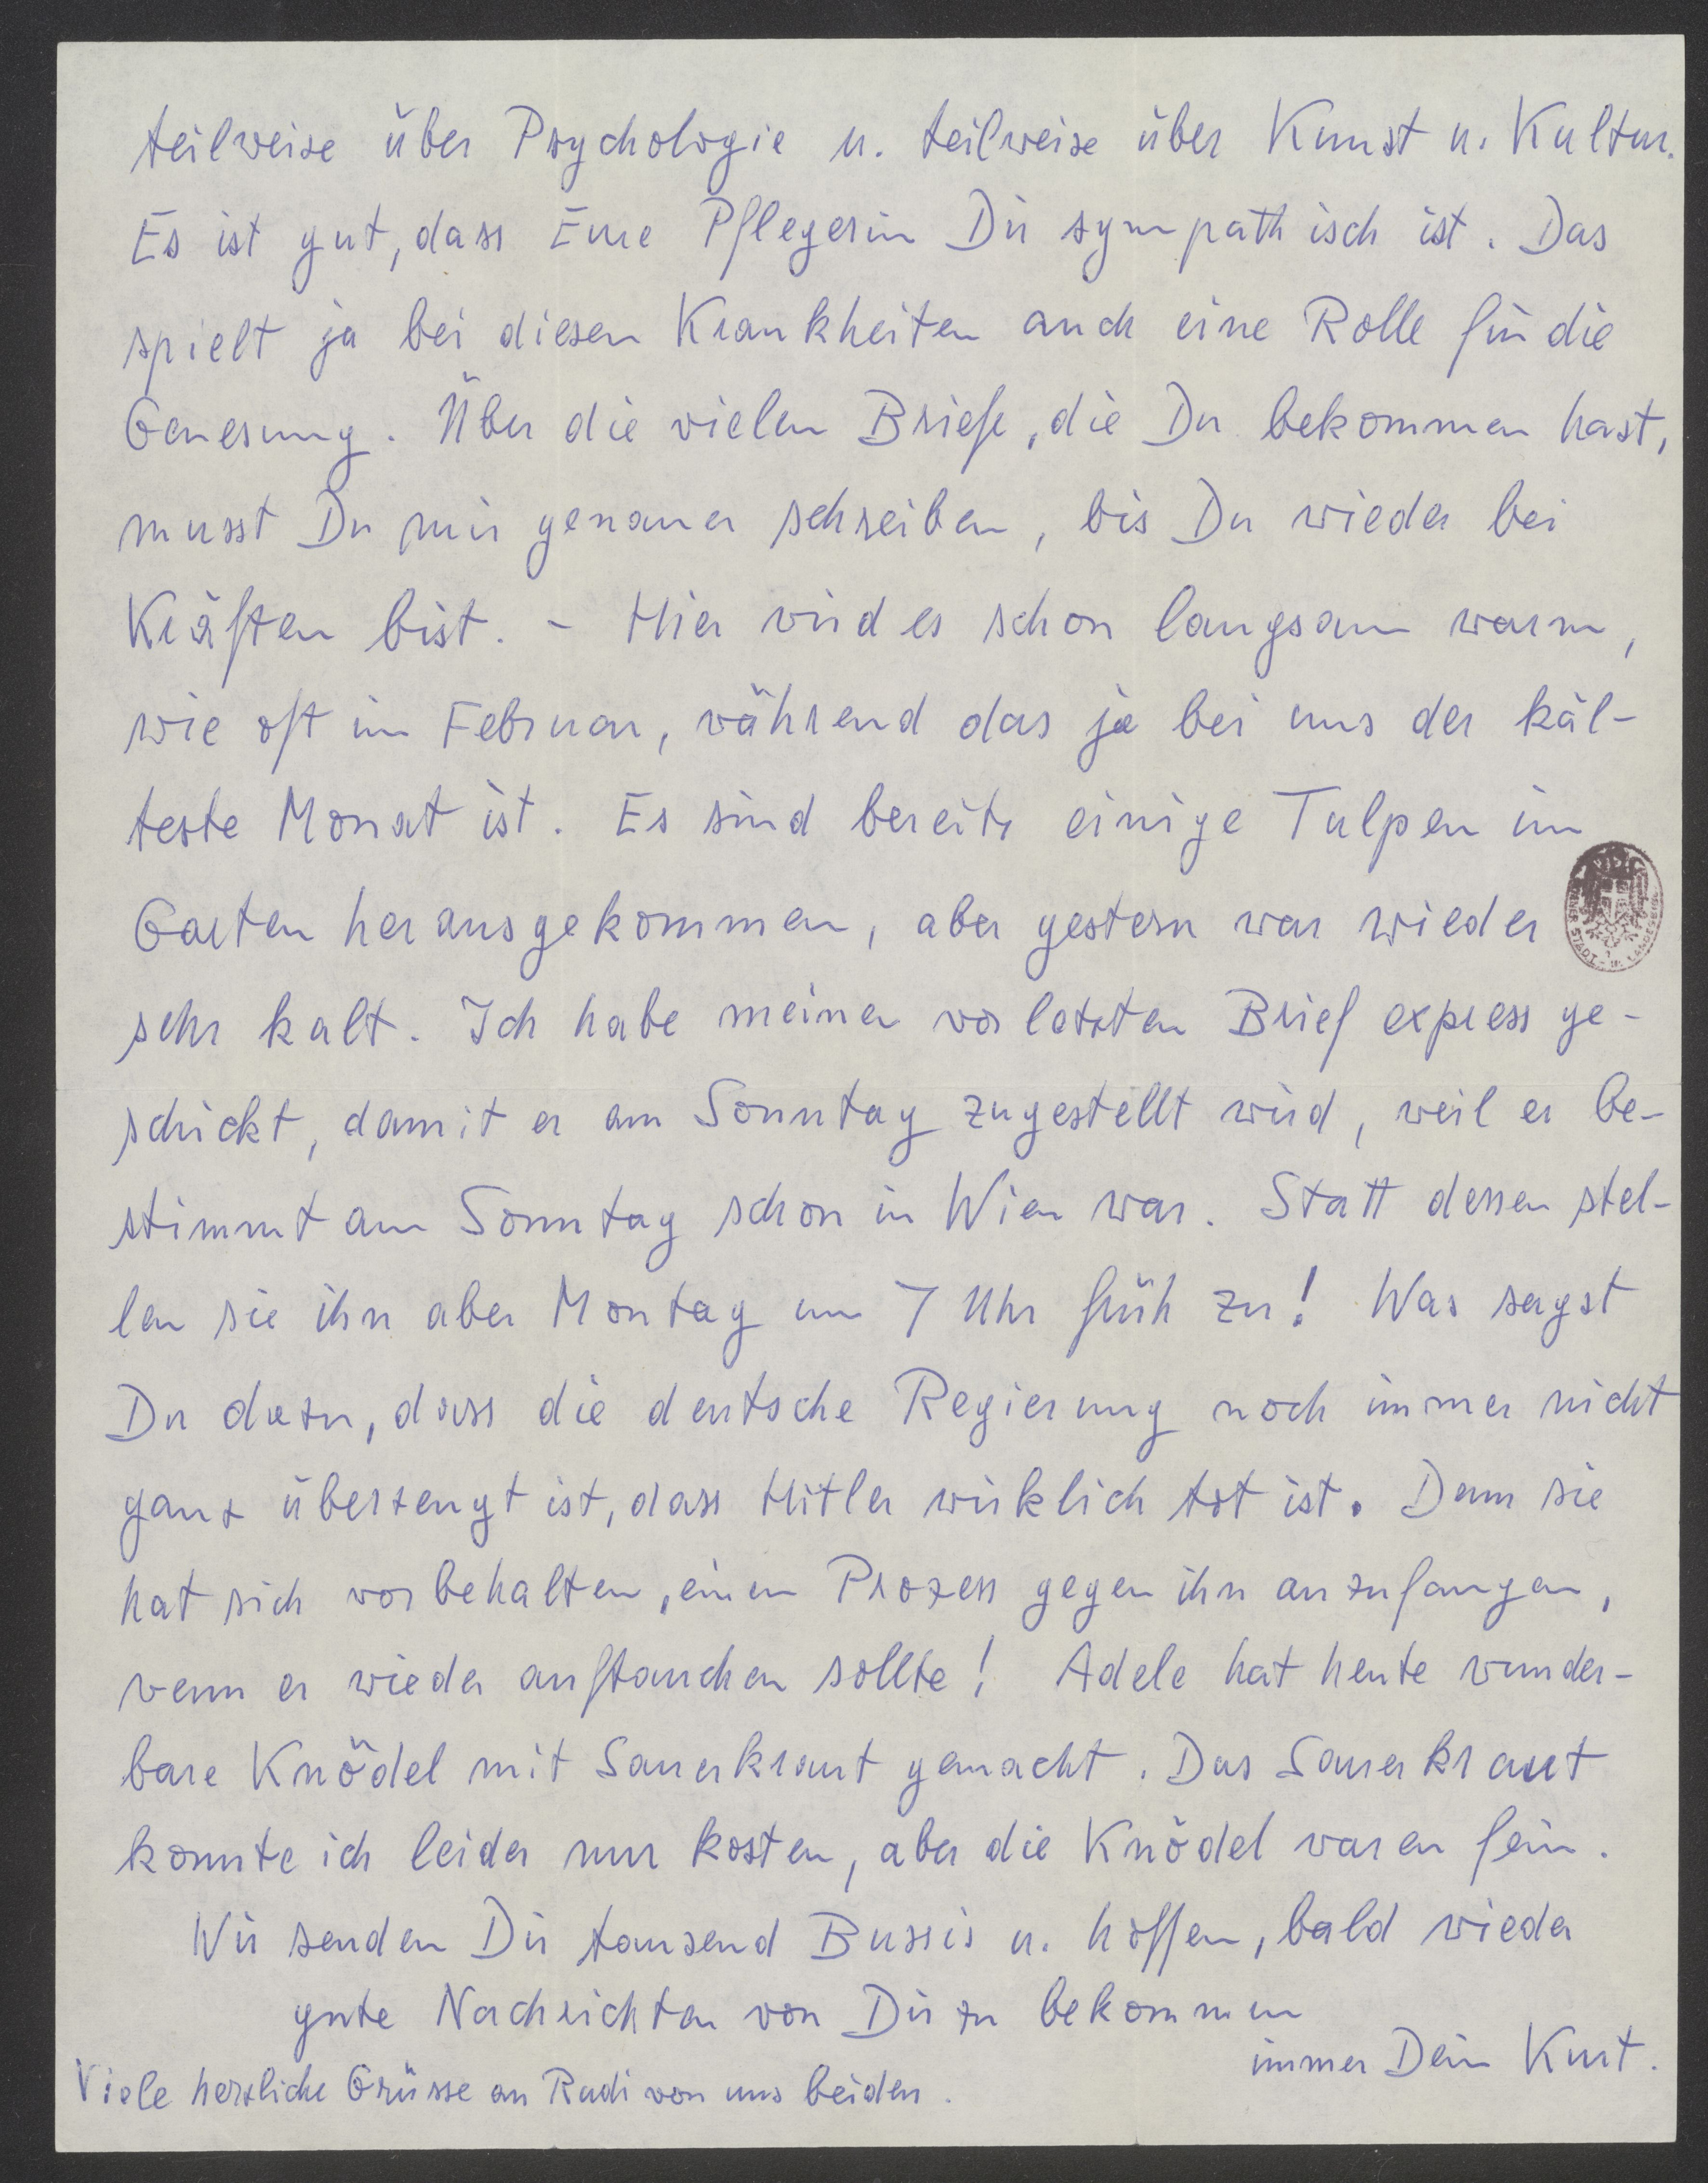 teilweise über Psychologie u. teilweise über Kunst u. Kultur.
Es ist gut, dass Eure Pflegerin Dir sympathisch ist. Das
spielt ja bei diesen Krankheiten auch eine Rolle für die
Genesung. Über die vielen Briefe, die Du bekommen hast,
musst Du mir genauer schreiben, bis Du wieder bei
Kräften bist. - Hier wird es schon langsam warm,
wie oft im Februar, während das ja bei uns der käl-
teste Monat ist. Es sind bereits einige Tulpen im
Garten herausgekommen, aber gestern war wieder
sehr kalt. Ich habe meinen vorletzten Brief express ge-
schickt, damit er am Sonntag zugestellt wird, weil er be-
stimmt am Sonntag schon in Wien war. Statt dessen stel-
len sie ihn aber Montag um 7 Uhr früh zu! Was sagst
Du dazu, dass die deutsche Regierung noch immer nicht
ganz überzeugt ist, dass Hitler wirklich tot ist. Denn sie
hat sich vorbehalten, einen Prozess gegen ihn anzufangen,
wenn er wieder auftauchen sollte! Adele hat heute wunder-
bare Knödel mit Sauerkraut gemacht. Das Sauerkraut
konnte ich leider nur kosten, aber die Knödel waren fein.
Wir senden Dir tausend Bussis u. hoffen, bald wieder
gute Nachrichten von Dir zu bekommen
immer Dein Kurt.
Viele herzliche Grüsse an Rudi von uns beiden.